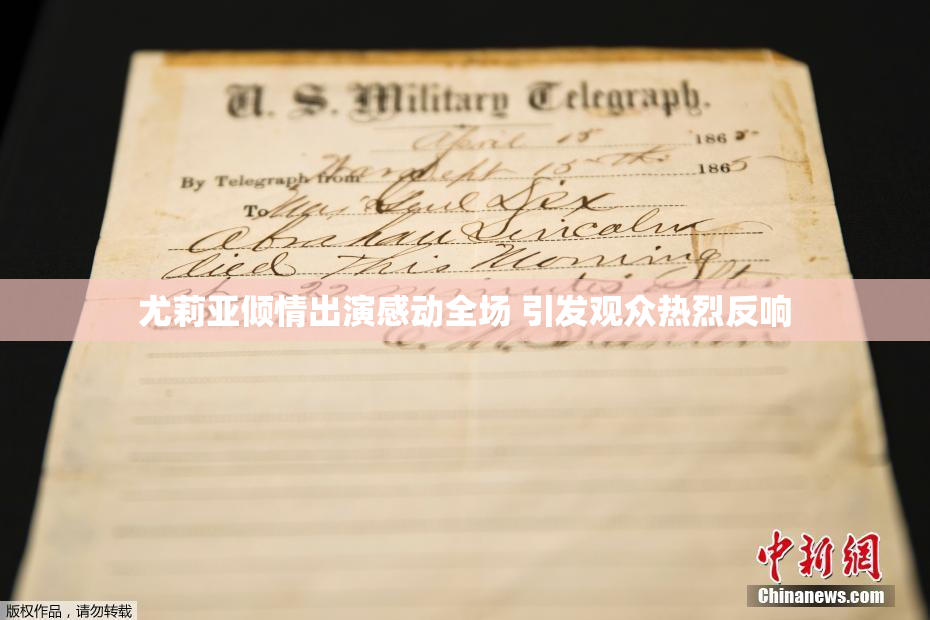 U. S. Military Telegraph.
April 15 1865
By Telegraph from War Dept 15th 1865
To Maj Genl Dix
Abraham Lincoln
died This Morning
at 22 minutes after
尤莉亚倾情出演感动全场 引发观众热烈反响
E. M. Stanton
中新网
Chinanews.com
版权作品，请勿转载